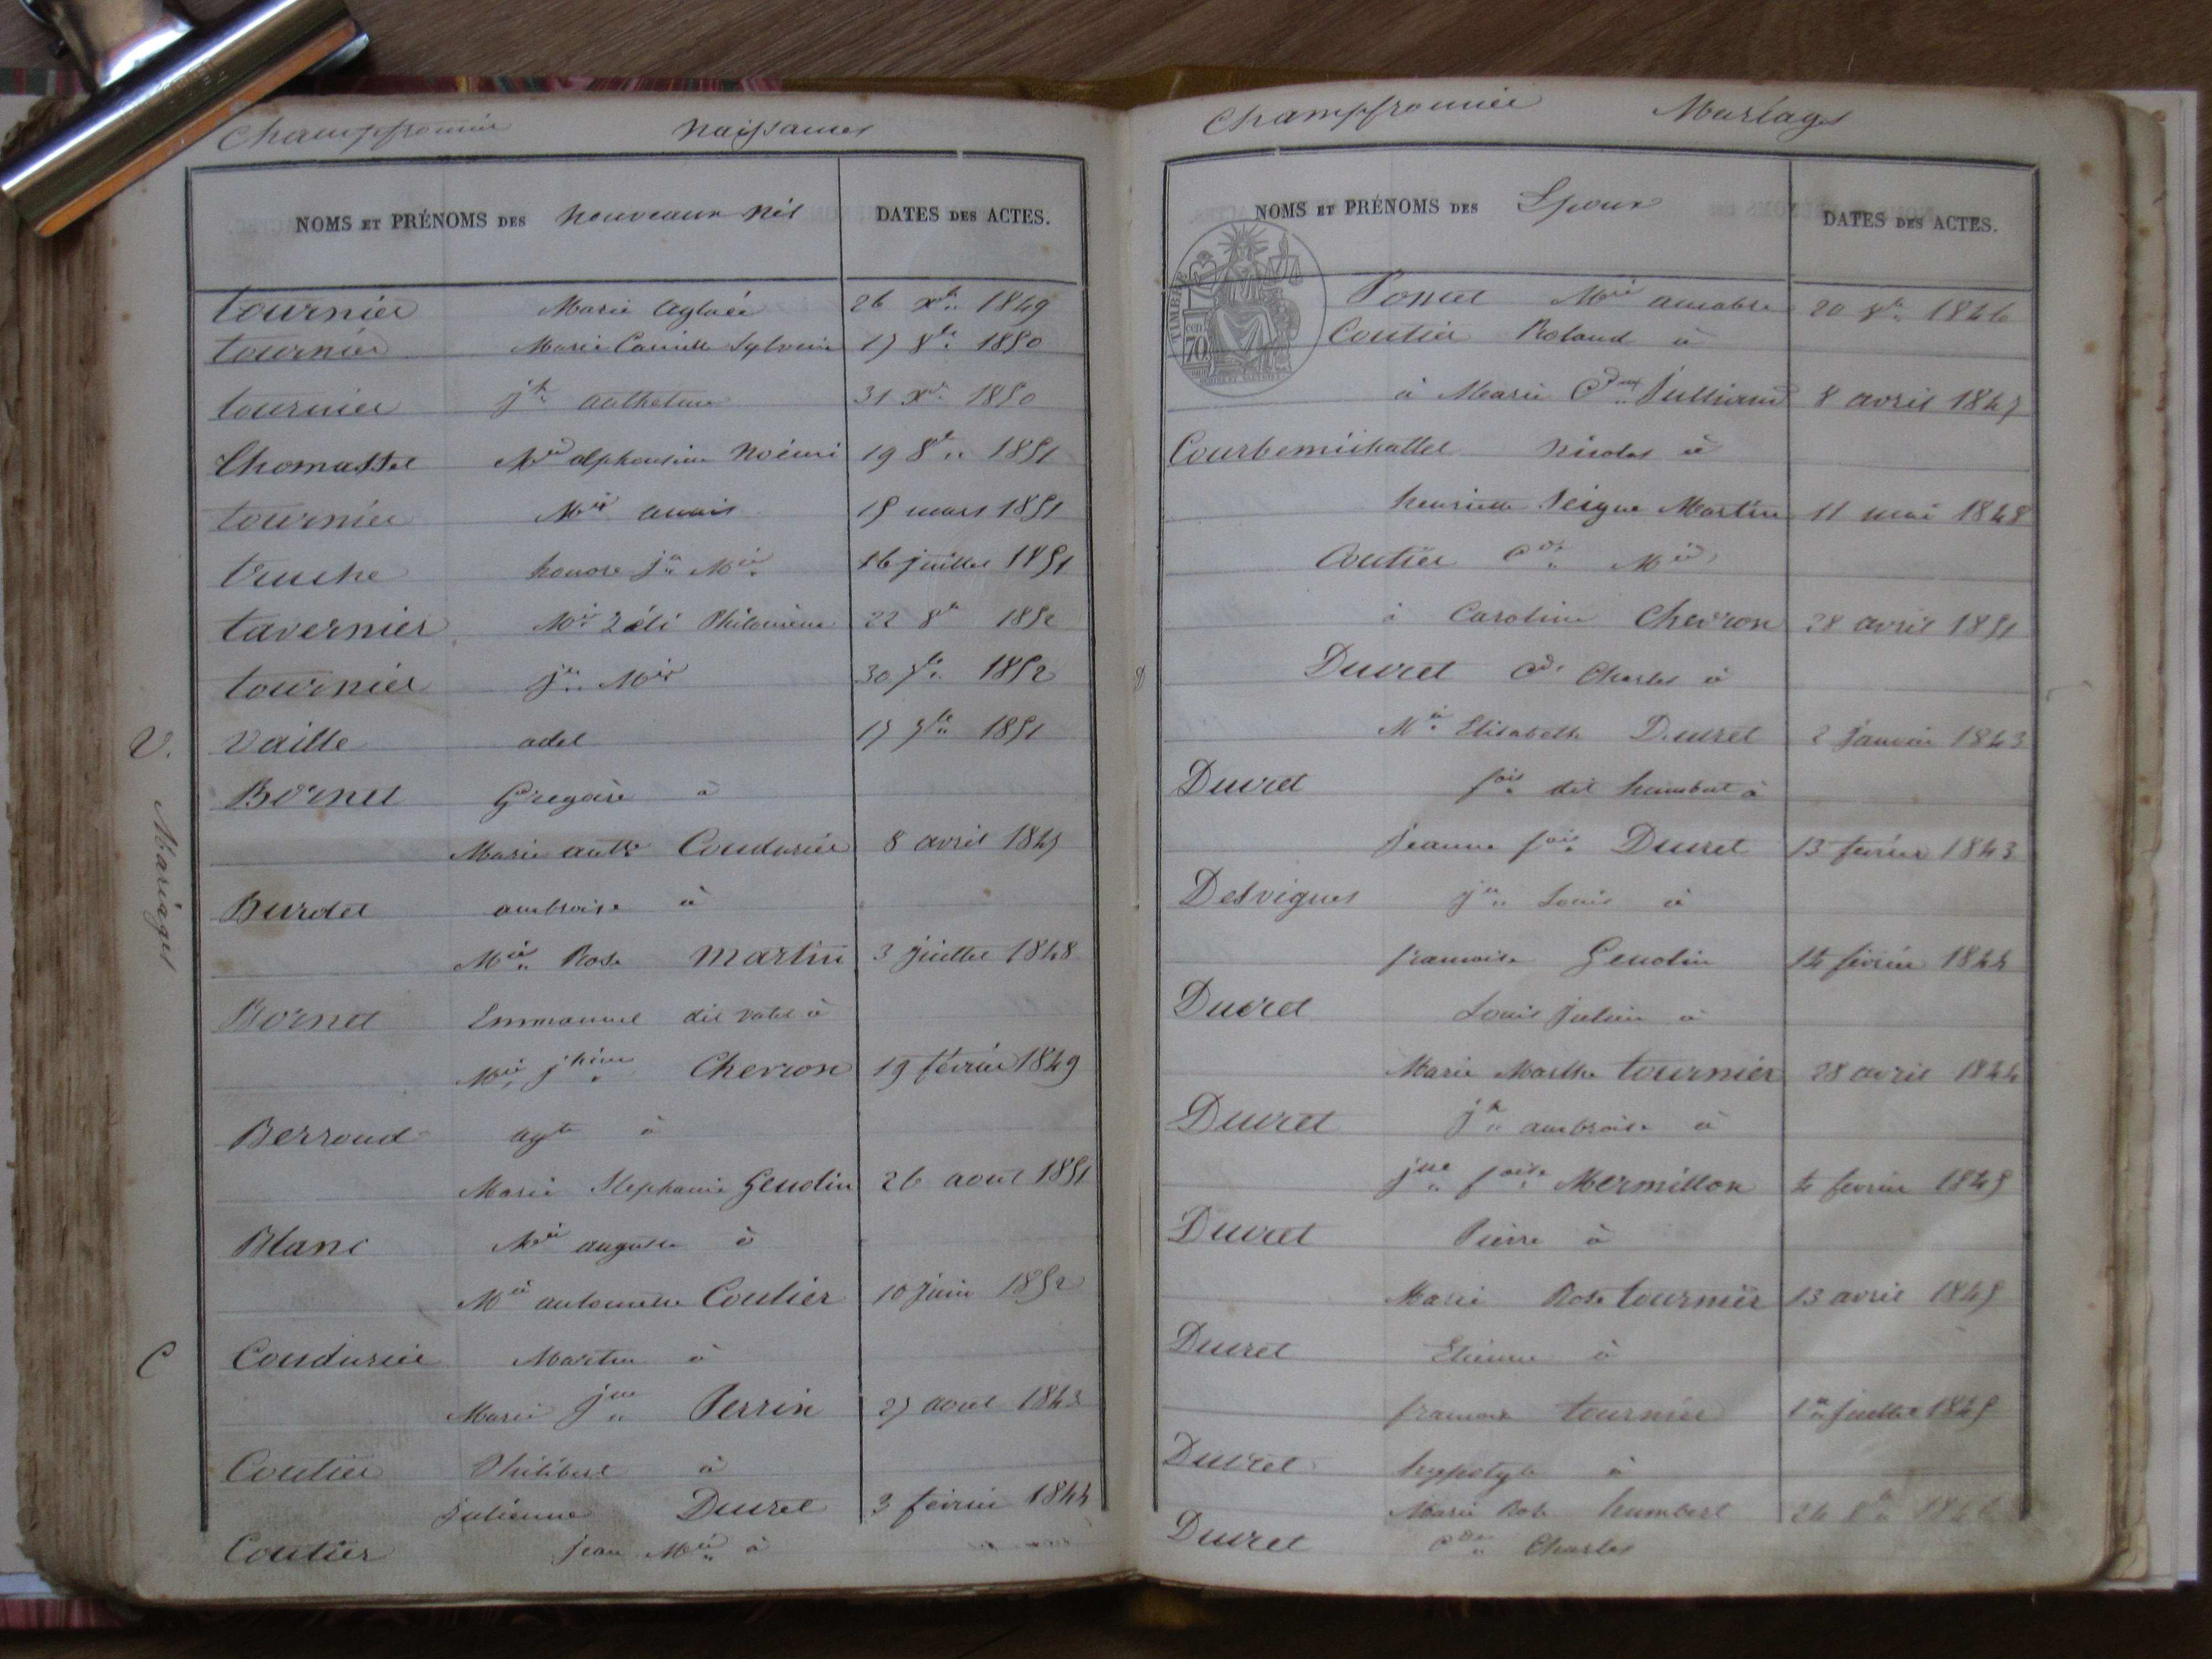 Champfromier Naissances
NOMS ET PRÉNOMS DES Nouveaux Nés DATES DES ACTES.
tournier Marie Aglaée 26 Xbre 1849
tournier Marie Camille Sylvenie 17 8bre 1850
tournier jh 31 Xbre 1850
Thomasset Mie alphonsine Noémi 19 8bre 1851
tournier Mie anais 15 mars 1851
truche honoré jn Mie 16 juillet 1851
tavernier Mie Zéli Philomène 22 8bre 1852
tournier jn Mie 30 7bre 1852
V. Vaille adel 17 7bre 1851
Mariages
Bornet Gregoire à
Marie antte Coudurier 8 avril 1845
Burdet ambroise à
Mie Rose Martin 3 juillet 1848
Bornet Emmanuel dit à
Mie jhine Chevron 19 février 1849
Berroud agte à
Marie Stephanie Gendin 26 aout 1851
Blanc Mie auguste à
Mie antoinette Coutier 10 juin 1852
C Coudurier Martin à
Marie jne Perrin 27 aout 1843
Coutier Philibert à
julienne Ducret 3 février 1844
Coutier jean Mie à
Champfromier Mariages
NOMS ET PRÉNOMS DES Epoux DATES DES ACTES.
TIMBRE
cen.
70
Poncet Mie 20 8bre 1846
Coutier Roland à
à Marie Cdine Jullierand 8 avril 1847
Courbemichallet Nicolas à
henriette Seigne Martin 11 mai 1848
Coutier Cde Mie
à Caroline Chevron 28 avril 1851
D Ducret Cde Charles à
Mie Elisabeth Ducret 2 janvier 1843
Ducret fois dit humbert à
jeanne foise Ducret 13 février 1843
Desvignes jn Louis à
francoise Gendin 14 février 1844
Ducret Louis julien à
Marie Marthe tournier 28 avril 1844
Ducret jh ambroise à
jne foise Mermillon 4 février 1845
Ducret Pierre à
Marie Rose tournier 13 avril 1845
Ducret Etienne à
francoise tournier 1er juillet 1845
Ducret hyppolyte à
Marie Rose humbert 24 8bre 1846
Ducret Cde Charles